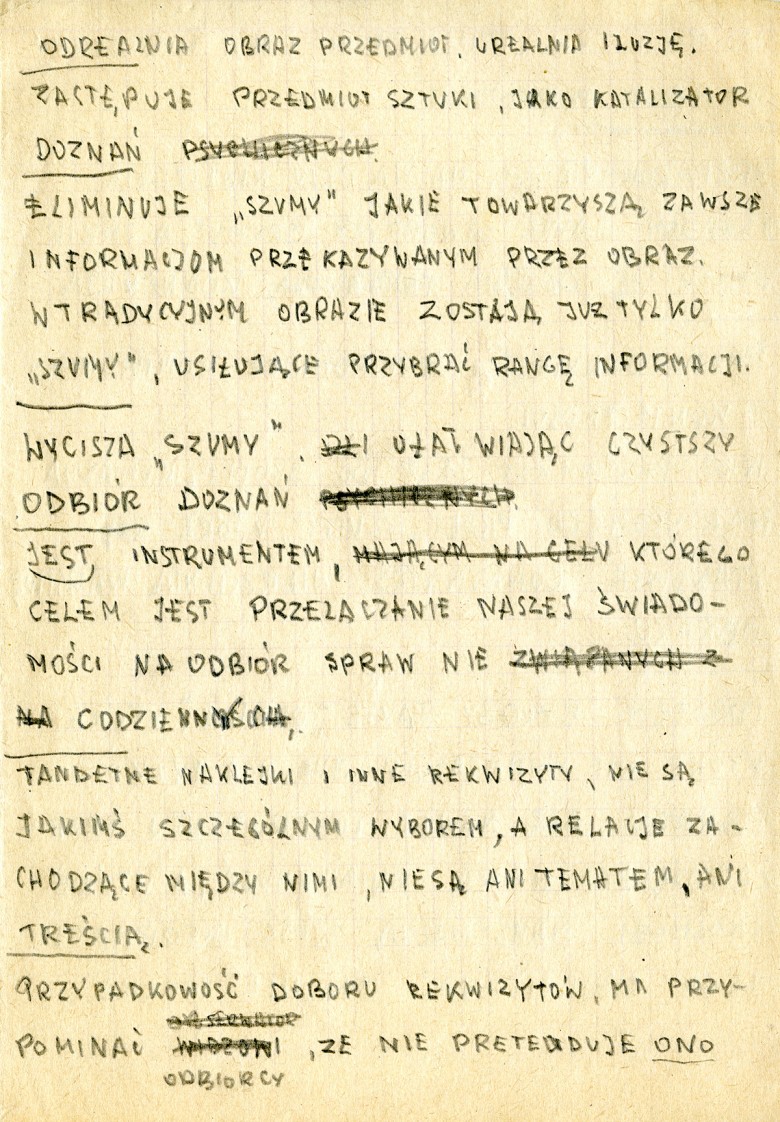 ODREALNIA OBRAZ PRZEDMIOT, UREALNIA ILUZJĘ.
ZASTĘPUJE PRZEDMIOT SZTUKI, JAKO KATALIZATOR
DOZNAŃ PSYCHICZNYCH.
ELIMINUJE „SZUMY" JAKIE TOWARZYSZĄ ZAWSZE
INFORMACJOM PRZEKAZYWANYM PRZEZ OBRAZ.
W TRADYCYJNYM OBRAZIE ZOSTAJĄ JUZ TYLKO
„SZUMY", USIŁUJĄCE PRZYBRAĆ RANGĘ INFORMACJI.
WYCISZA „SZUMY", I UŁATWIAJĄC CZYSTSZY
ODBIÓR DOZNAŃ PSYCHICZNYCH.
JEST INSTRUMENTEM, MAJĄCYM NA CELU KTÓREGO
CELEM JEST PRZEŁĄCZANIE NASZEJ ŚWIADO-
MOŚCI NA ODBIÓR SPRAW NIE ZWIĄZANYCH Z
NA CODZIENNOŚCIĄ.
TANDETNE NAKLEJKI I INNE REKWIZYTY, NIE SĄ
JAKIMŚ SZCZEGÓLNYM WYBOREM, A RELACJE ZA-
CHODZĄCE MIĘDZY NIMI, NIE SĄ ANI TEMATEM, ANI
TREŚCIĄ.
PRZYPADKOWOŚĆ DOBORU REKWIZYTÓW, MA PRZY-
POMINAĆ WIDZOWI, ZE NIE PRETENDUJE ONO
ODBIORCY